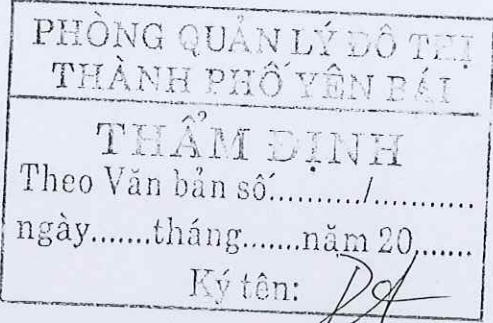 PHÒNG QUẢN LÝ ĐÔ THỊ
THÀNH PHỐ YÊN BÁI
THẨM ĐỊNH
Theo Văn bản số........../...........
ngày.......tháng.......năm 20.......
Ký tên: